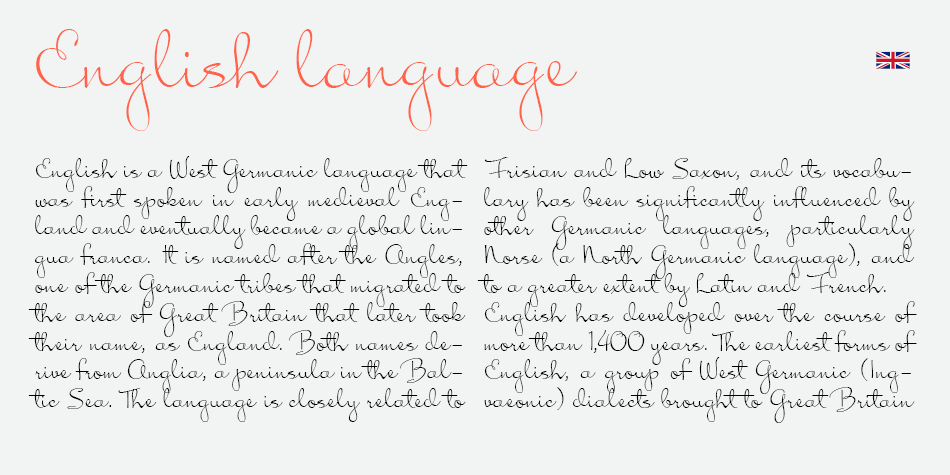 English language
English is a West Germanic language that
was first spoken in early medieval Eng-
land and eventually became a global lin-
gua franca. It is named after the Angles,
one of the Germanic tribes that migrated to
the area of Great Britain that later took
their name, as England. Both names de-
rive from Anglia, a peninsula in the Bal-
tic Sea. The language is closely related to
Frisian and Low Saxon, and its vocabu-
lary has been significantly influenced by
other Germanic languages, particularly
Norse (a North Germanic language), and
to a greater extent by Latin and French.
English has developed over the course of
more than 1,400 years. The earliest forms of
English, a group of West Germanic (Ing-
vaeonic) dialects brought to Great Britain